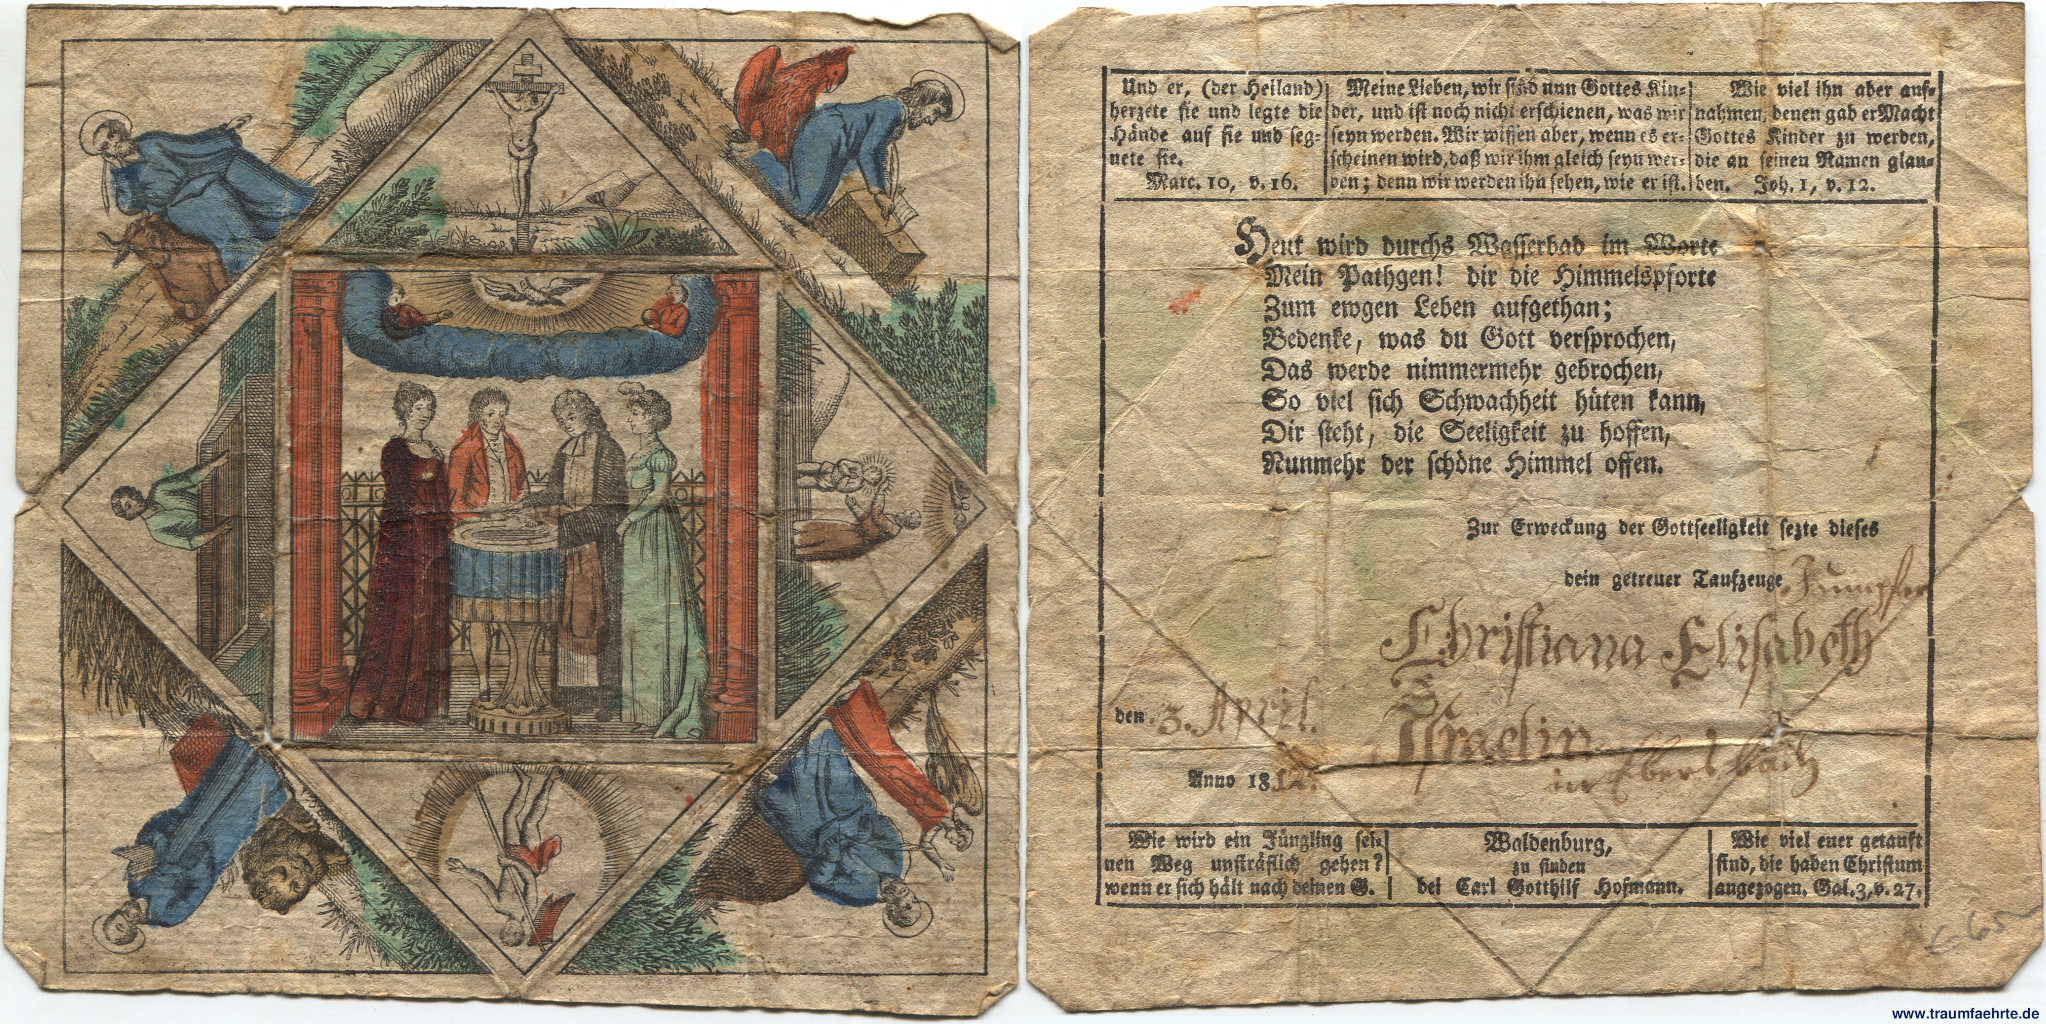 Und er, (der Heiland)
herzete sie und legte die
Hände auf sie und seg-
nete sie.
Marc. 10, v. 16.
Meine Lieben, wir sind nun Gottes Kin-
der, und ist noch nicht erschienen, was wir
seyn werden. Wir wissen aber, wenn es er-
scheinen wird, daß wir ihm gleich seyn wer-
den; denn wir werden ihn sehen, wie er ist.
Wie viel ihn aber auf-
nahmen, denen gab er Macht
Gottes Kinder zu werden,
die an seinen Namen glau-
ben. Joh. 1, v. 12.
Heut wird durchs Wasserbad im Worte
Mein Pathgen! dir die Himmelspforte
Zum ewgen Leben aufgethan;
Bedenke, was du Gott versprochen,
Das werde nimmermehr gebrochen,
So viel sich Schwachheit hüten kann,
Dir steht, die Seeligkeit zu hoffen,
Nunmehr der schöne Himmel offen.
Zur Erweckung der Gottseeligkeit sezte dieses
dein getreuer Taufzeuge Jumpfer
Christiana Elisabeth
den 3. April.
Israelin
Anno 1812.
in Ebersbach
Wie wird ein Jüngling sei-
nen Weg unsträflich gehen?
wenn er sich hält nach deinen G.
Waldenburg,
zu finden
bei Carl Gotthilf Hofmann.
Wie viel euer getauft
sind, die haben Christum
angezogen. Gal. 3, v. 27.
www.traumfaehrte.de